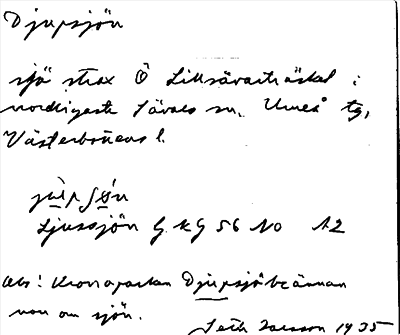 Djupsjön
sjö strax Ö Lillsävarträsket i
nordligaste Sävars sn. Umeå tg,
Västerbottens l.
Ljussjön G K G 56 NO 12
Obs! Kronoparken Djupsjöbrännan
nv om sjön.
Seth Jansson 1935